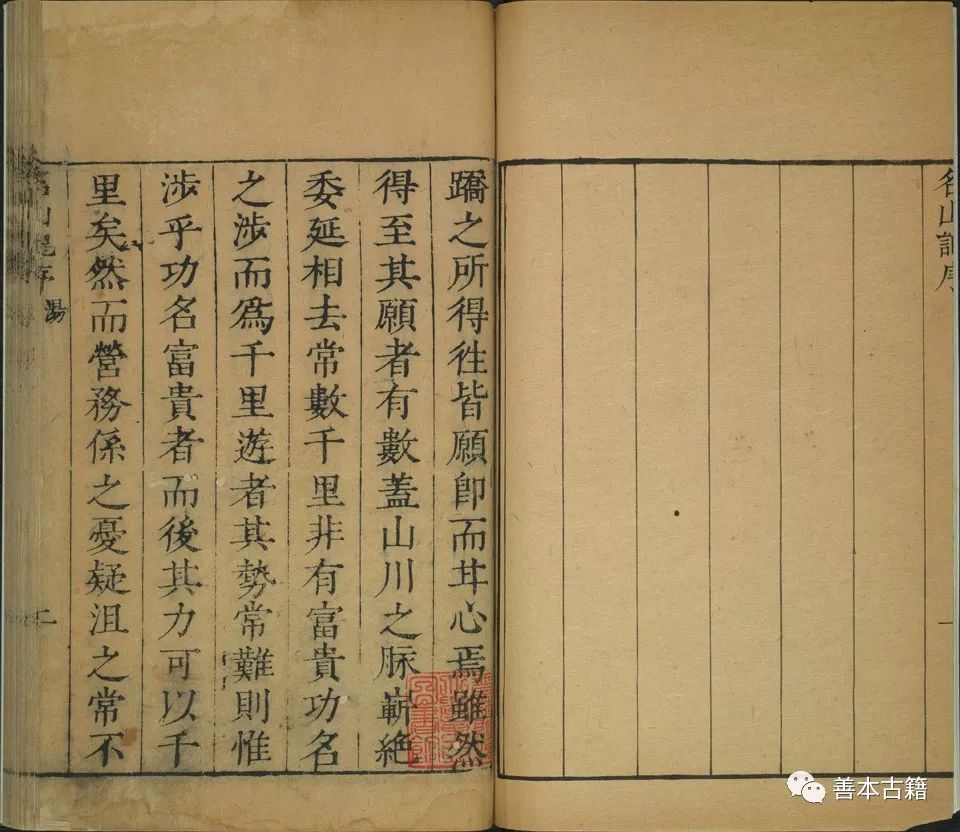 名山記序
一
蹻之所得徃皆願卽而甘心焉雖然
得至其願者有數蓋山川之脉嶄絶
委延相去常數千里非有富貴功名
之涉而爲千里遊者其勢常難則惟
涉乎功名富貴者而後其力可以千
里矣然而營務係之憂疑沮之常不
名山記序 湯
二
善本古籍